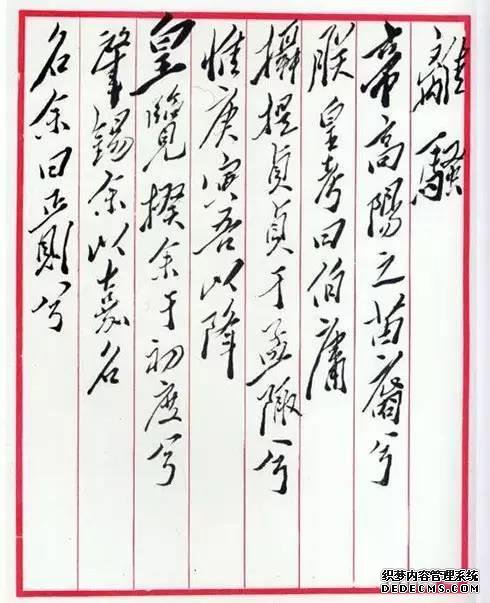 離騷
帝高陽之苗裔兮
朕皇考曰伯庸
攝提貞貞于孟陬兮
惟庚寅吾以降
皇覽揆余于初度兮
肇錫余以嘉名
名余曰正則兮
织梦内容管理系统
DEDECMS.COM